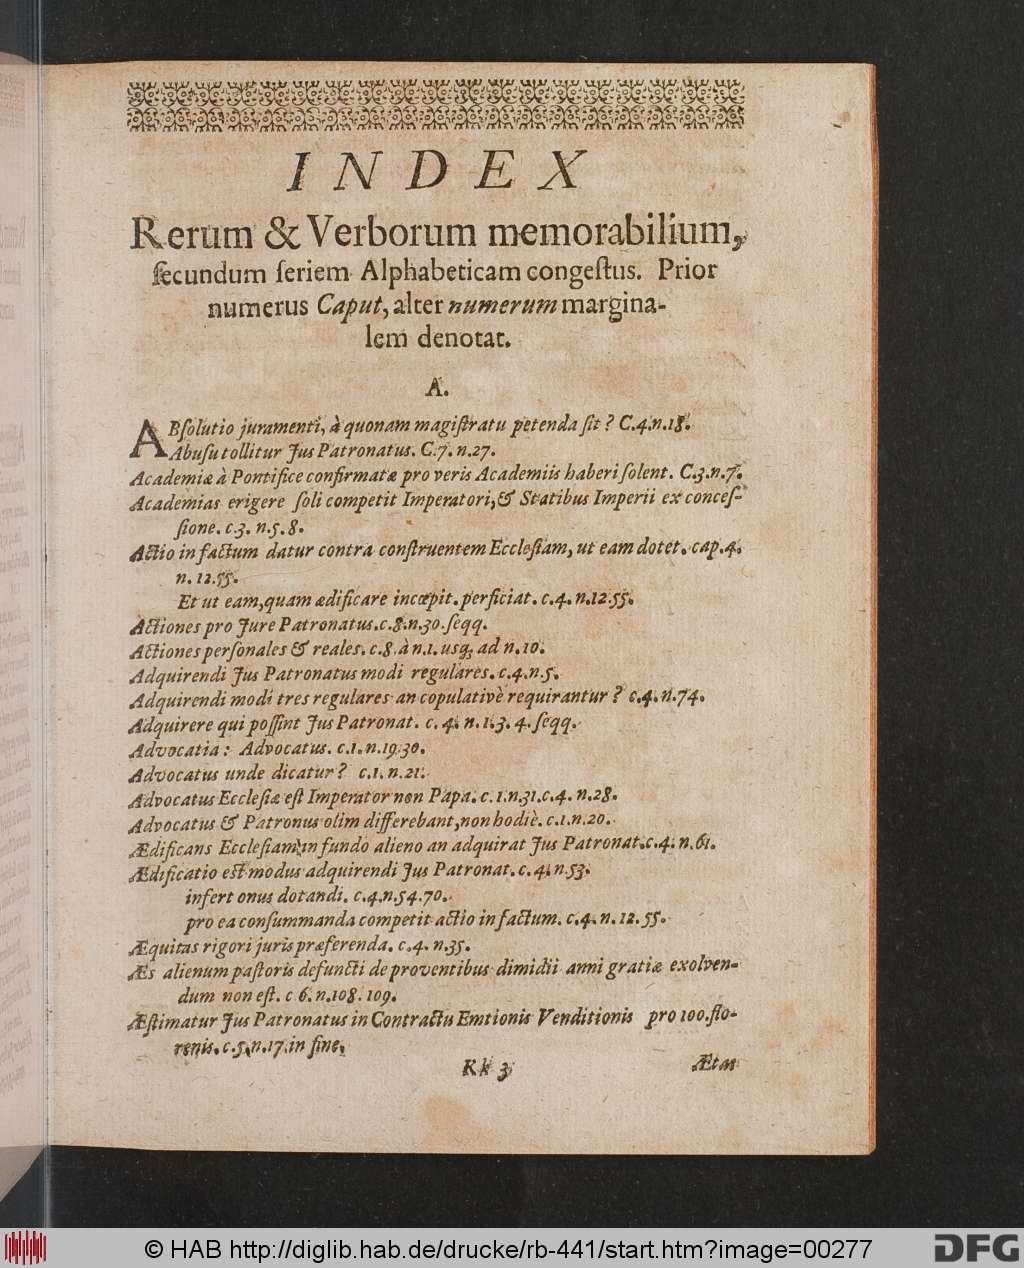 INDEX
Rerum & Verborum memorabilium,
ſecundum ſeriem Alphabeticam congeſtus. Prior
numerus Caput, alter numerum margina-
lem denotat.
A.
ABſolutio juramenti, à quonam magiſtratu petenda ſit? C.4.n.18.
Abuſu tollitur Jus Patronatus. C.7.n.27.
Academiæ à Pontifice confirmatæ pro veris Academiis haberi ſolent. C.3.n.7.
Academias erigere ſoli competit Imperatori, & Statibus Imperii ex conceſ-
ſione. c.3. n.5.8.
Actio in factum datur contra conſtruentem Eccleſiam, ut eam dotet. cap.4.
n. 12.55.
Et ut eam, quam ædificare incœpit. perficiat. c.4. n.12.55.
Actiones pro Jure Patronatus. c.8.n.30. ſeqq.
Actiones perſonales & reales. c.8. à n.1. usq; ad n.10.
Adquirendi Jus Patronatus modi regulares. c.4.n.5.
Adquirendi modi tres regulares an copulativè requirantur? c.4.n.74.
Adquirere qui poſſint Jus Patronat. c. 4. n. 1.3. 4. ſeqq.
Advocatia: Advocatus. c.1.n.19.30.
Advocatus unde dicatur? c.1.n.21.
Advocatus Eccleſiæ eſt Imperator non Papa. c.1.n.31.c.4. n.28.
Advocatus & Patronus olim differebant, non hodiè. c.1.n.20.
Ædificans Eccleſiam in fundo alieno an adquirat Jus Patronat. c.4. n.61.
Ædificatio eſt modus adquirendi Jus Patronat. c.4. n.53.
infert onus dotandi. c.4.n.54.70.
pro ea conſummanda competit actio in factum. c.4. n. 12. 55.
Æquitas rigori juris præferenda. c.4. n.35.
Æs alienum paſtoris defuncti de proventibus dimidii anni gratiæ exolven-
dum non eſt. c 6. n.108. 109.
Æſtimatur Jus Patronatus in Contractu Emtionis Venditionis pro 100. flo-
renis. c.5. n.17. in fine.
Kk 3
Ætas
© HAB http://diglib.hab.de/drucke/rb-441/start.htm?image=00277
DFG